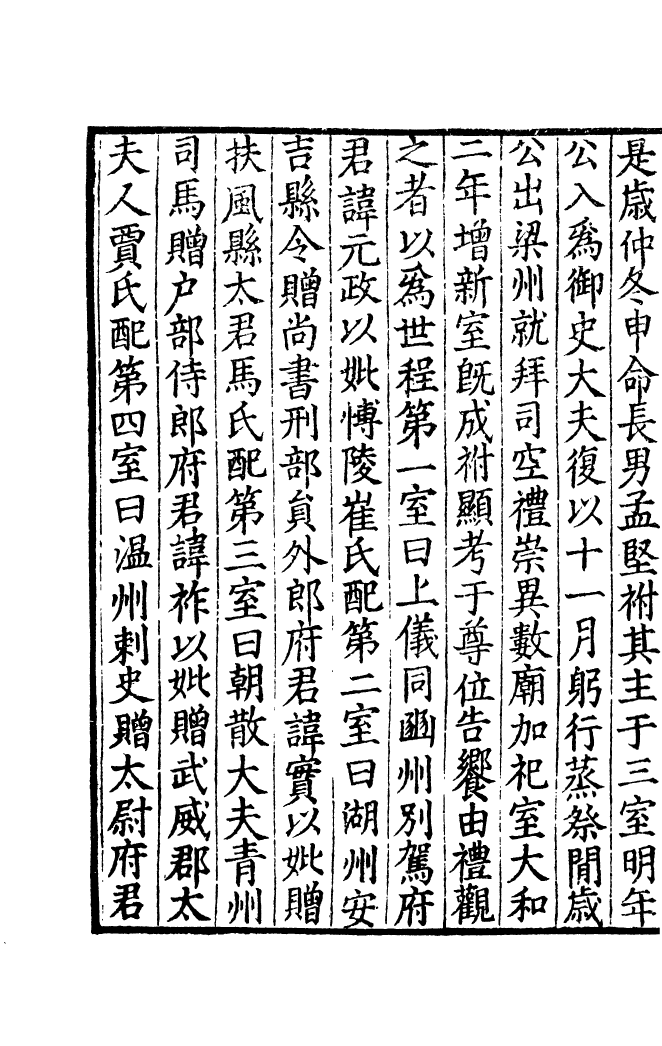 是歳仲冬申命長男孟堅祔其主于三室明年
公入爲御史大夫復以十一月躬行蒸祭閒歳
公出梁州就拜司空禮崇異數廟加祀室大和
二年增新室旣成祔顯考于尊位告饗由禮觀
之者以爲世程第一室曰上儀同豳州別駕府
君諱元政以妣愽陵崔氏配第二室曰湖州安
吉縣令贈尚書刑部貟外郎府君諱實以妣贈
扶風縣太君馬氏配第三室曰朝散大夫青州
司馬贈户部侍郎府君諱祚以妣贈武威郡太
夫人賈氏配第四室曰温州刺史贈太尉府君